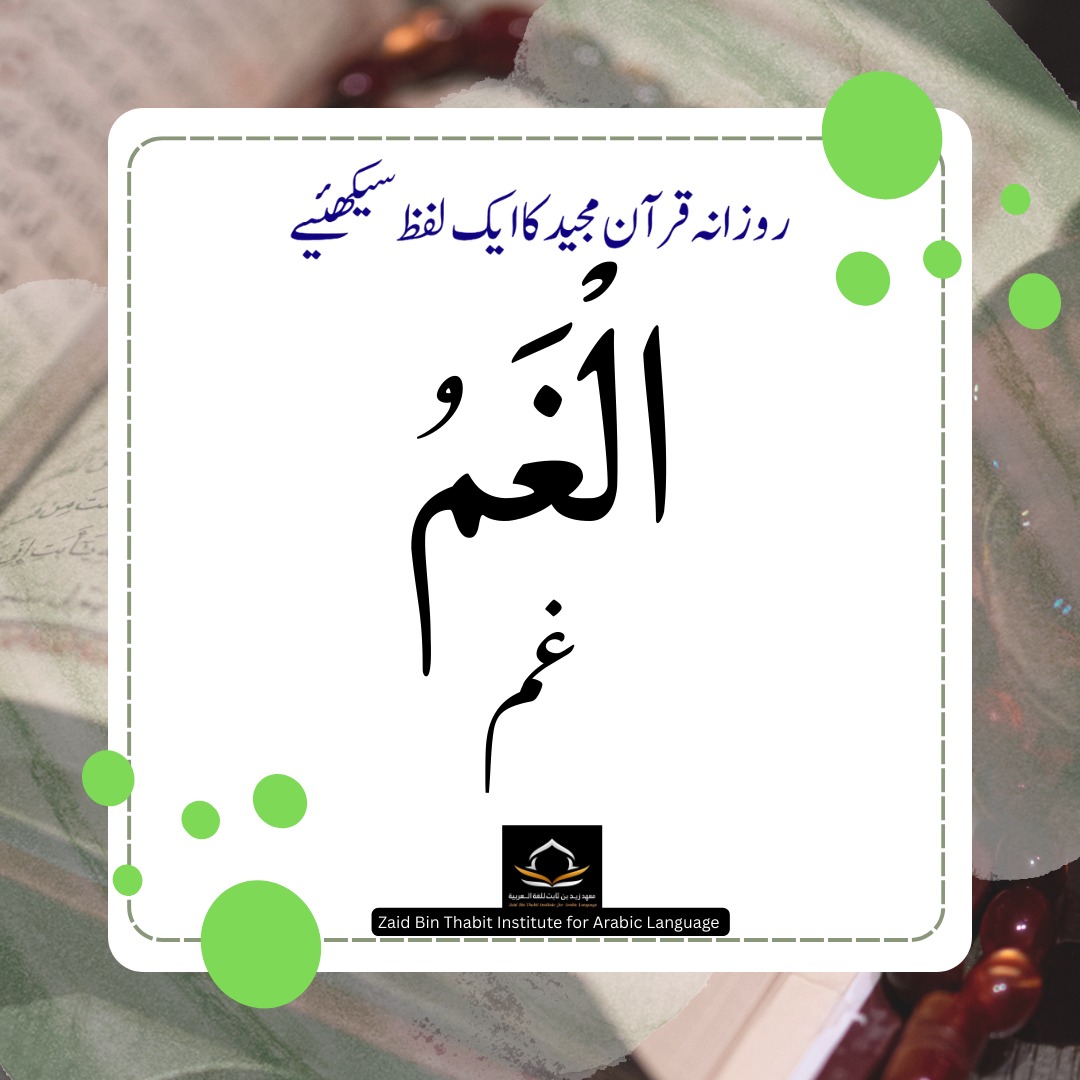 روزانہ قرآن مجید کا ایک لفظ سیکھئیے
الْغَمُ
غم
معهد زيد بن ثابت للغة العربية
Zaid Bin Thabit Institute for Arabic Language
Zaid Bin Thabit Institute for Arabic Language